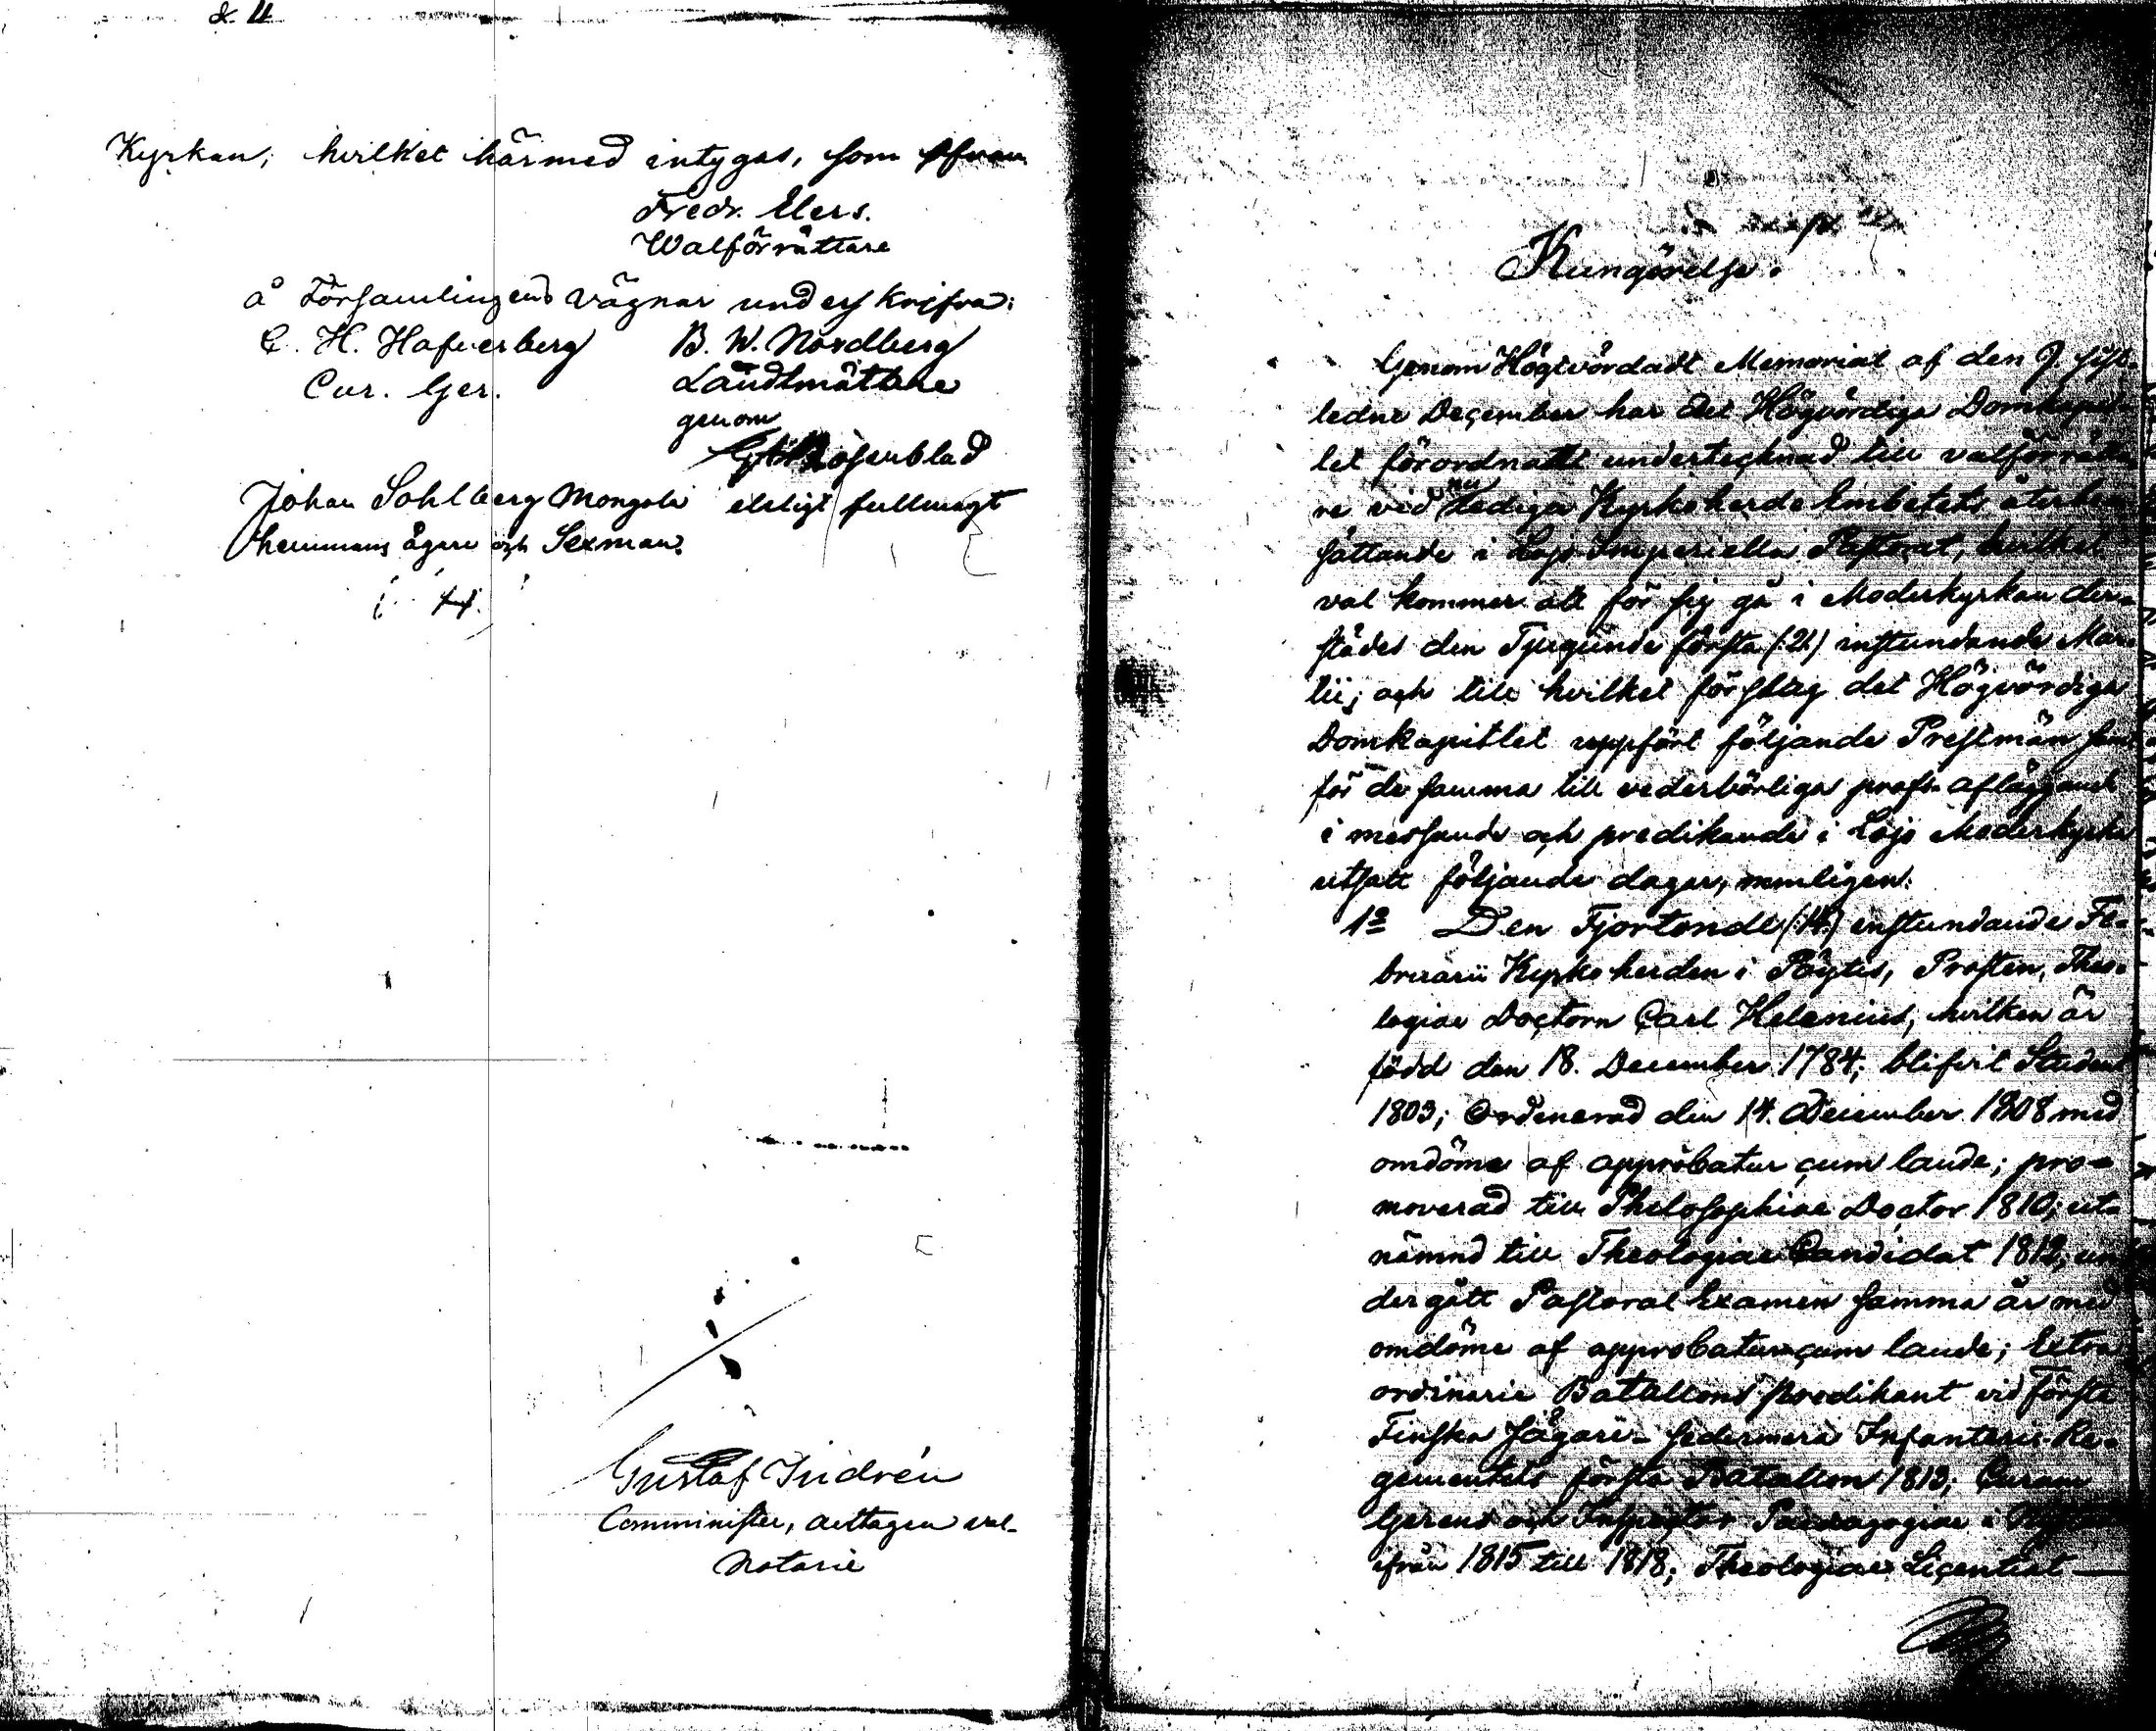 Kyrkan; hvilket härmed intygas, som ofvan
Fredr. Elers.
Walförrättare
å Församlingens vägnar underskrifva:
C. H. Hafverberg
Cur. Ger.
B. W. Nordberg
Landtmätare
genom
Rosenblad
enligt fullmagt
Johan Sohlberg Mongola
hemmans ägare och Sexman.
Gustaf Indrén
Comminister, antagen val-
Notarie
Kungörelse.
Genom Högtvördadt Memorial af den 9. sist-
ledne December har det Högvördiga Domkapit-
let förordnatt undertecknad till valförrätta-
re vid nu lediga Kyrkoherde Embetets återbe-
sättande i Lojo Imperiella Pastorat, hvilket
val kommer att för sig gå i Moderkyrkan der-
städes den Tjugunde första (:21:) instundande Mar-
tii; och till hvilket förslag det Högvördiga
Domkapitlet uppfört följande Prestmän samt
för de samma till vederbörliga profs afläggande
i messande och predikande i Lojo Moderkyrka
utsatt följande dagar, nemligen:
1o Den Fjortonde (:14:) instundande Fe-
bruarii Kyrkoherden i Pöytis, Prosten, Theo-
logiae Doctorn Carl Helenius, hvilken är
född den 18. December 1784; blifvit Student
1803; Ordinerad den 14. December 1808 med
omdöme af approbatur cum laude; pro-
moverad till Philosophiae Doctor 1810; ut-
nämnd till Theologiae Candidat 1812; un-
dergått Pastoral Examen samma år med
omdöme af approbatur cum laude; Extra
ordinarie Bataillons predikant vid första
Finska Jägare- sedermera Infanterie-Re-
gementets första Batallion 1813; Curam
Gerens och Inspector Paedagogiae i
ifrån 1815 till 1818; Theologiae Licentiat